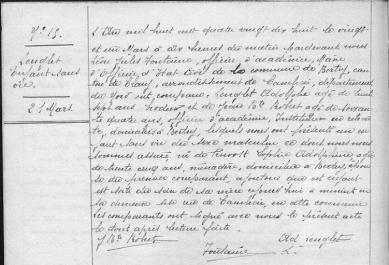 N° 15.
Lenglet
Enfant sans
vie.
21 Mars.
L'An mil huit cent quatre vingt dix huit le vingt
et un Mars à dix heures du matin pardevant nous
Léon Jules Fontaine, officier d'académie, Maire
d'Officier d'Etat Civil de la commune de Bertry, can
ton de Clary, arrondissement de Cambrai, département
du Nord sont comparus: Lenglet Adolphe âgé de
ans, et de Jean Bte Robet âgé de
quatre ans, officier d'académie, Instituteur en retrai
te, domiciliés à Bertry, lesquels nous ont présenté un en
fant sans vie du sexe masculin et dont nous nous
sommes assuré né de Sophie Adolphine âgée
de trente ans, ménagère, domiciliée à Bertry,
du premier comparant, ajoutons que cet enfant
est sorti du sein de sa mère à minuit en
sa demeure rue de Cambrai, en cette commune
les comparants ont signé avec nous le présent acte
le tout après lecture faite.
J Bte Robet
Ad Lenglet
Fontaine
L.